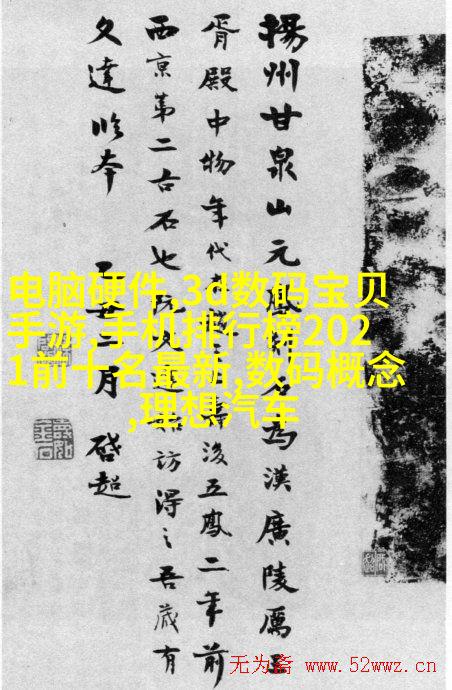 揚州甘泉山元鳳石為漢廣陵厲王
胥殿中物年代後五鳳二年前
西京第二古石也阮文達訪得之吾藏有
文達臨本 二月 啓超
电脑硬件,3d数码宝贝
手游,手机排行榜202
1前十名最新,数码概念
,理想汽车
无为斋 www.52wwz.cn